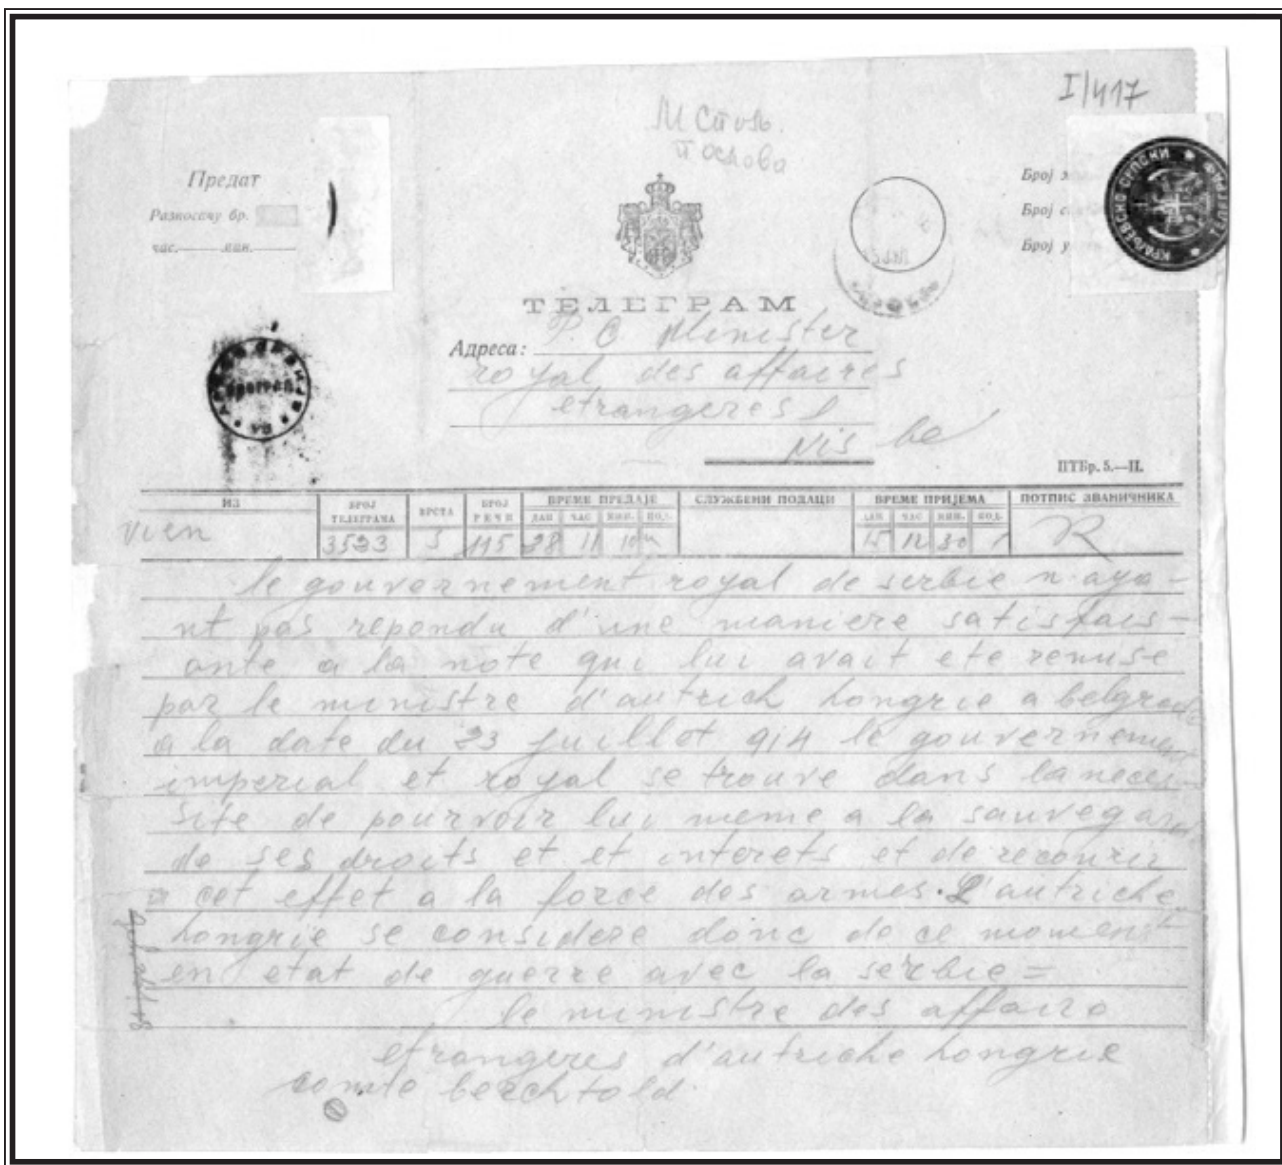 I/417
Предат
Разносачу бр.
час. мин.
Број
Број
Број
ТЕЛЕГРАМ
Адреса: P. C Minister
royal des affaires
etrangeres
Nis
ПТБр. 5.—II.
ИЗ БРОЈ ТЕЛЕГРАМА ВРСТА БРОЈ РЕЧИ ВРЕМЕ ПРЕДАЈЕ СЛУЖБЕНИ ПОДАЦИ ВРЕМЕ ПРИЈЕМА ПОТПИС ЗВАНИЧНИКА
ДАН ЧАС МИН. ПОД. ДАН ЧАС МИН. ПОД.
vien 3523 115 28 11 10 15 12 30 R
le gouvernement royal de serbie n aya-
nt pas repondu d'une maniere satisfais-
ante a la note qui lui avait ete remise
par le ministre d'autrich hongrie a belgrade
a la date du 23 juillet 914 le gouvernement
imperial et royal se trouve dans la neces-
site de pourvoir lui meme a la sauvegarde
de ses droits et et interets et de recourir
a cet effet a la force des armes. L'autriche
hongrie se considere donc de ce moment
en etat de guerre avec la serbie =
le ministre des affaire
etrangeres d'autriche hongrie
comte berchtold